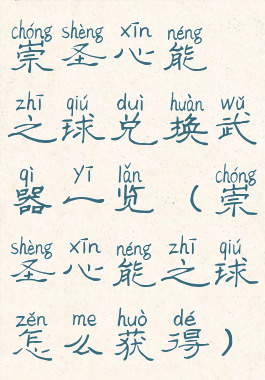 chóng shèng xīn néng
崇圣心能
zhī qiú duì huàn wǔ
之球兑换武
qì yī lǎn chóng
器一览（崇
shèng xīn néng zhī qiú
圣心能之球
zěn me huò dé
怎么获得）